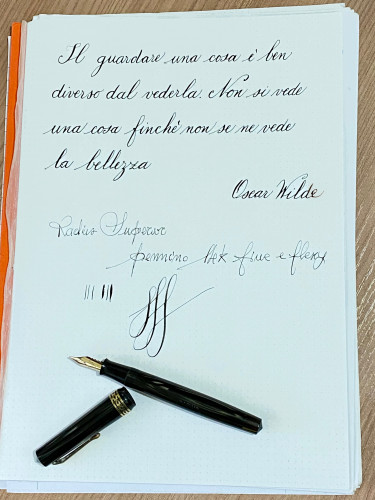 Il guardare una cosa è ben
diverso dal vederla. Non si vede
una cosa finché non se ne vede
la bellezza
Oscar Wilde
Radius Superior
pennino 14k fine e flexy